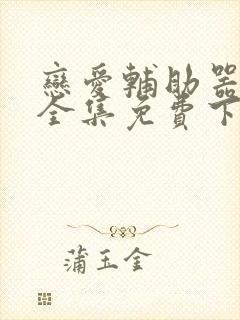 戀愛輔助器
全集免費下
蒲玉金